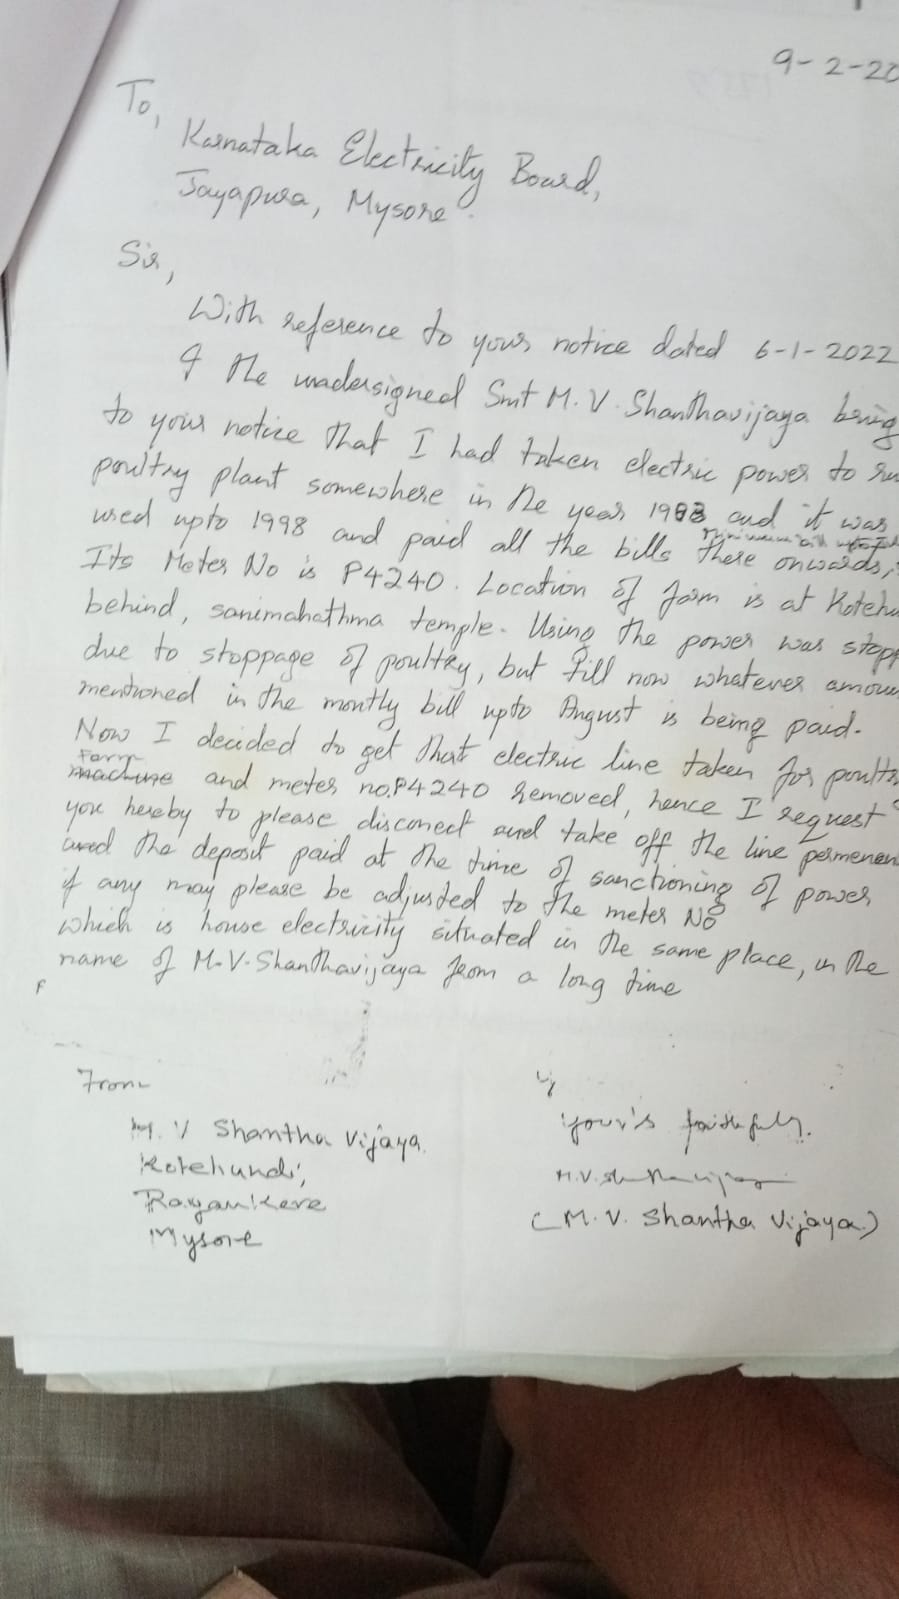 9-2-20
To,
Karnataka Electricity Board,
Jayapura, Mysore.
Sir,
With reference to your notice dated 6-1-2022
I the undersigned Smt M. V. Shanthavijaya bring
to your notice that I had taken electric power to
poultry plant somewhere in the year 1983 and it was
used upto 1998 and paid all the bills there onwards,
Its Meter No is P4240. Location of farm is at
behind, sanimahathma temple. Using the power was
due to stoppage of poultry, but till now whatever
mentioned in the montly bill upto August is being paid.
Now I decided to get that electric line taken for
Farm
machine and meter no.P4240 removed, hence I request
you hereby to please disconect and take off the line
and the deposit paid at the time of sanctioning of power
if any may please be adjusted to the meter No
which is house electricity situated in the same place, in the
name of M.V. Shanthavijaya from a long time
From
M. V Shantha Vijaya
Kotehundi,
Rayankere
Mysore
Your's faithfully.
(M. V. Shantha Vijaya)